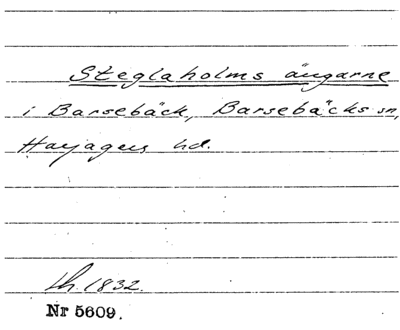 Steglaholms ängarne
i Barsebäck, Barsebäcks sn,
Harjagers hd.
lh. 1832.
Nr 5609.